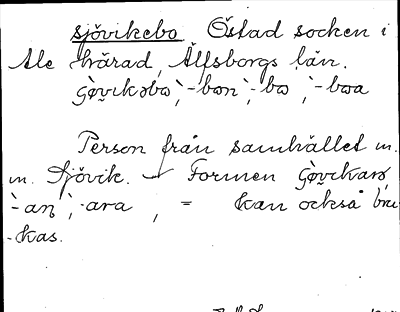 sjövikebo Östad socken i
Ale härad, Älfsborgs län.
-bon, -bo, -boa
Person från samhället m.
m. Sjövik. – Formen
-an, -ara, = kan också bru-
-kas.